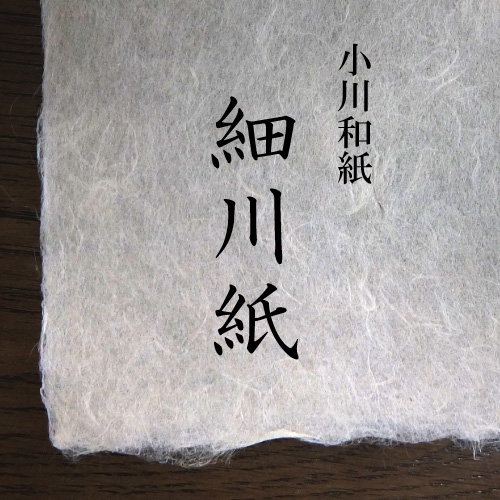 小川和紙
細川紙